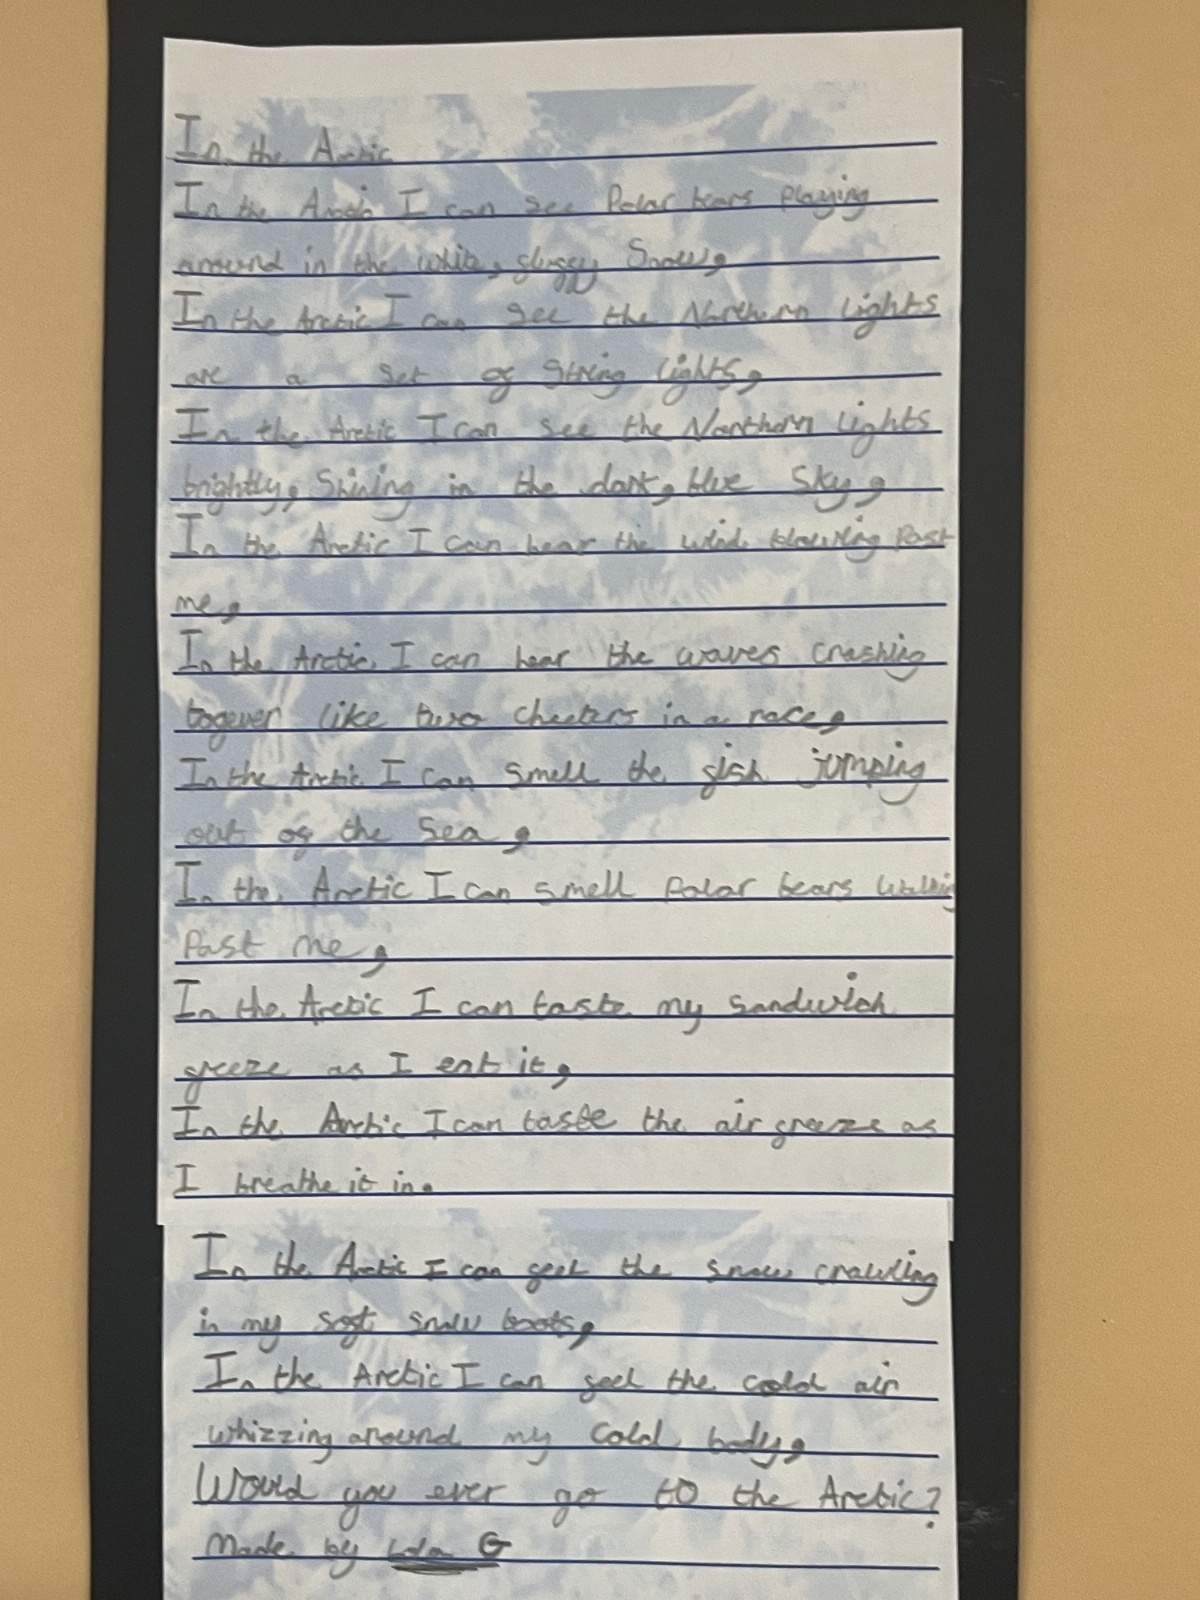 In the Arctic
In the Arctic I can see Polar bears Playing
around in the white, fluffy Snow,
In the Arctic I can see the Northern Lights
are a set of String lights,
In the Arctic I can see the Northern Lights
brightly, Shining in the dark, blue Sky,
In the Arctic I can hear the wind blowing Past
me,
In the Arctic I can hear the waves crashing
togever like two cheetars in a race,
In the Arctic I can smell the fish jumping
out of the Sea,
In the Arctic I can smell Polar bears walking
Past me,
In the Arctic I can taste my sandwich
freeze as I eat it,
In the Arctic I can taste the air freeze as
I breathe it in.
In the Arctic I can feel the snow crawling
in my soft snow boots,
In the Arctic I can feel the cold air
whizzing around my cold body,
Would you ever go to the Arctic?
Made by Lola G